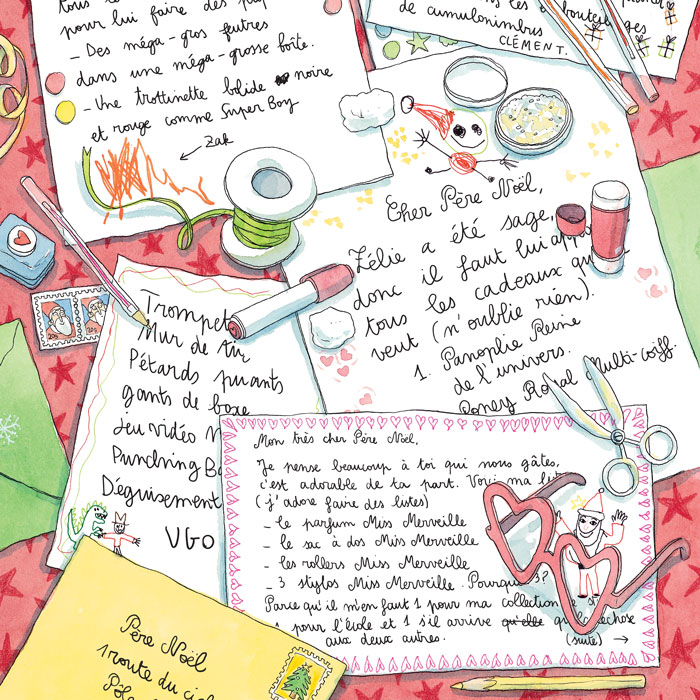 pour lui faire des
- Des méga-gros feutres
dans une méga-grosse boîte.
- Une trottinette bolide noire
et rouge comme Super Boy
Zak
de cumulonimbus
CLÉMENT.
Cher Père Noël,
Zélie a été sage,
donc il faut lui
tous les cadeaux
veut (n'oublie rien).
1. Panoplie Reine
de l'univers.
Poney Royal Multi-coiff.
Trompet
Mur de
Pétards puants
gants de boxe
jeu vidéo
Punching Ba
Déguisement
UGO
Mon très cher Père Noël,
Je pense beaucoup à toi qui nous gâtes,
c'est adorable de ta part. Voici ma
(j'adore faire des listes)
- le parfum Miss Merveille
- le sac à dos Miss Merveille
- les rollers Miss Merveille
- 3 stylos Miss Merveille. Pourquoi 3?
Parce qu'il m'en faut 1 pour ma collection
1 pour l'école et 1 s'il arrive qu'elle chose
aux deux autres.
(suite) →
Père Noël
1 route du ciel